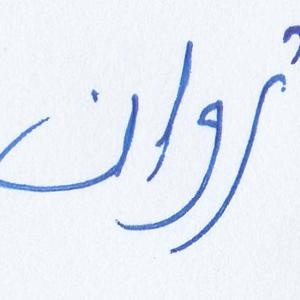 روان